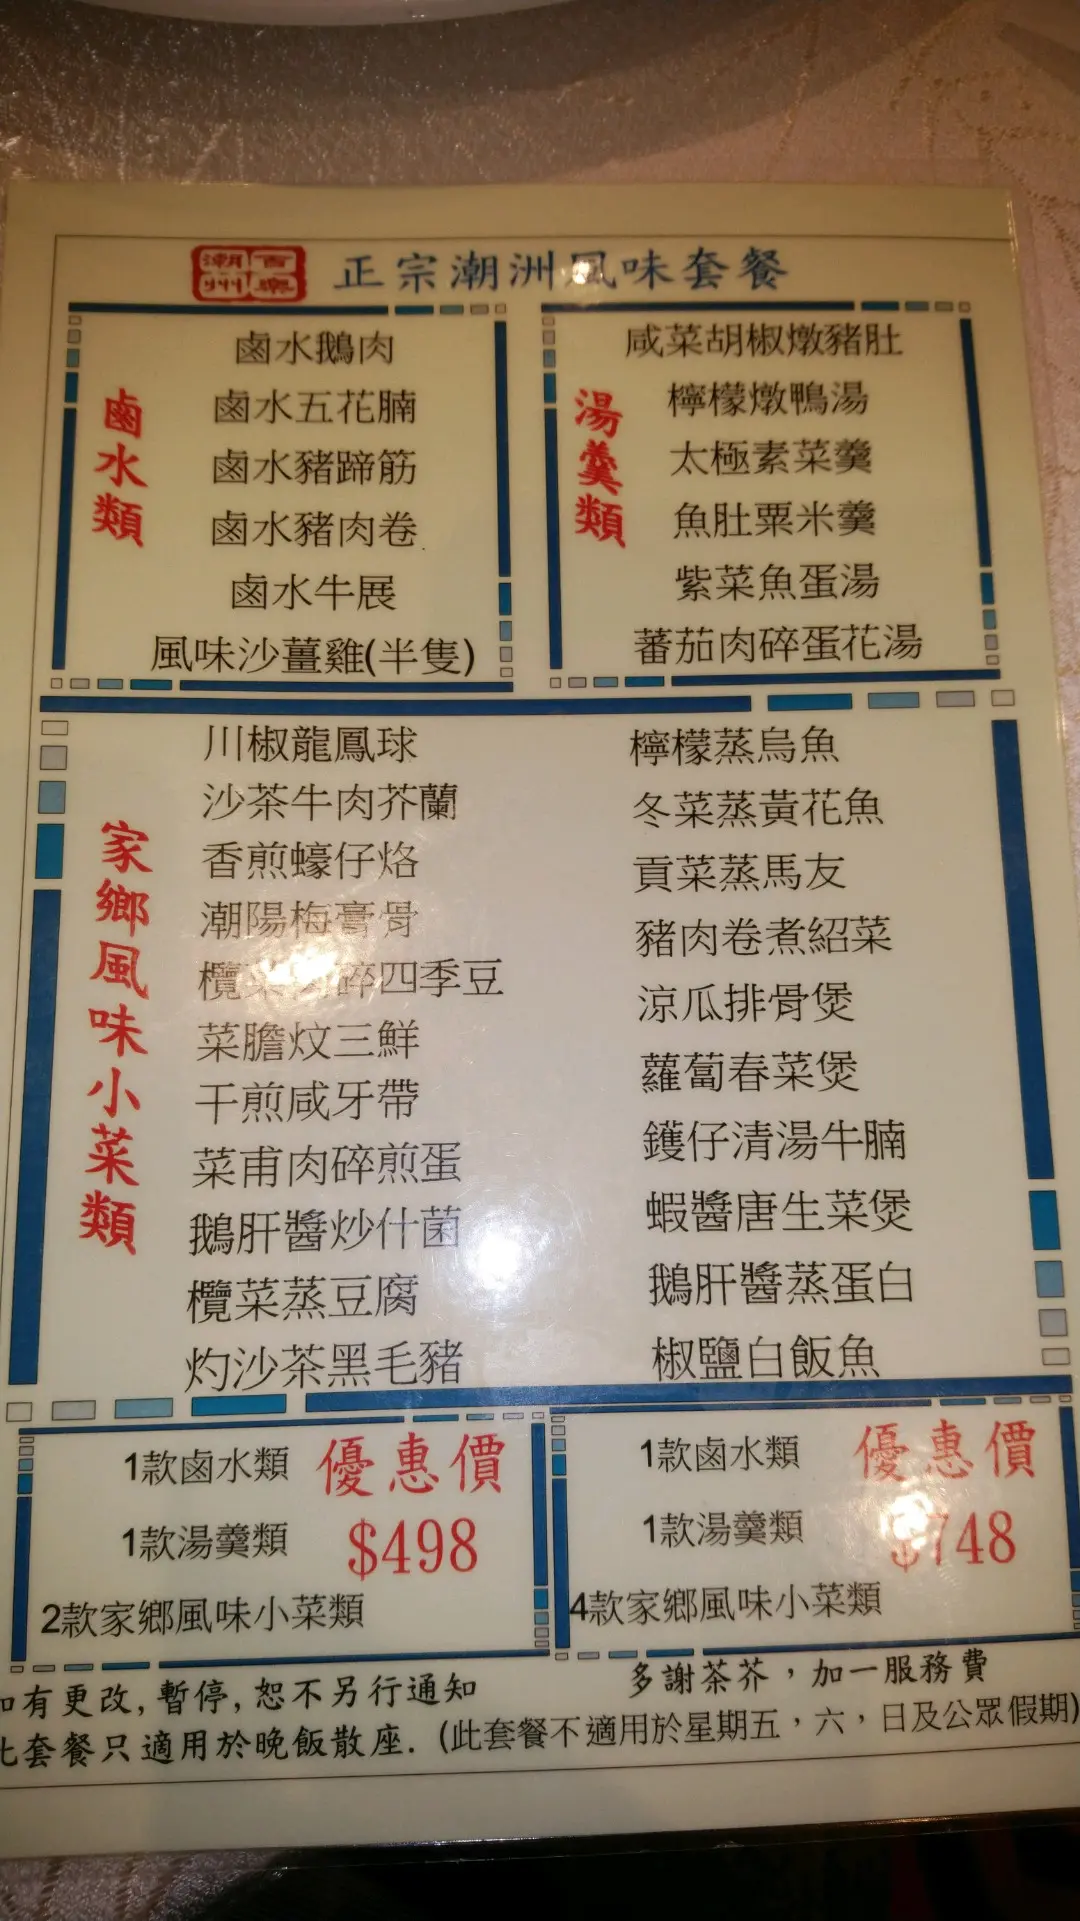 潮州 百樂 正宗潮洲風味套餐
鹵水類
鹵水鵝肉
鹵水五花腩
鹵水豬蹄筋
鹵水豬肉卷
鹵水牛展
風味沙薑雞(半隻)
湯羹類
咸菜胡椒燉豬肚
檸檬燉鴨湯
太極素菜羹
魚肚粟米羹
紫菜魚蛋湯
蕃茄肉碎蛋花湯
家鄉風味小菜類
川椒龍鳳球
沙茶牛肉芥蘭
香煎蠔仔烙
潮陽梅膏骨
欖菜肉碎四季豆
菜膽炆三鮮
干煎咸牙帶
菜甫肉碎煎蛋
鵝肝醬炒什菌
欖菜蒸豆腐
灼沙茶黑毛豬
檸檬蒸烏魚
冬菜蒸黃花魚
貢菜蒸馬友
豬肉卷煮紹菜
涼瓜排骨煲
蘿蔔春菜煲
鑊仔清湯牛腩
蝦醬唐生菜煲
鵝肝醬蒸蛋白
椒鹽白飯魚
1款鹵水類 優惠價
1款湯羹類 $498
2款家鄉風味小菜類
1款鹵水類 優惠價
1款湯羹類 $748
4款家鄉風味小菜類
如有更改,暫停,恕不另行通知
多謝茶芥，加一服務費
此套餐只適用於晚飯散座. (此套餐不適用於星期五，六，日及公眾假期)